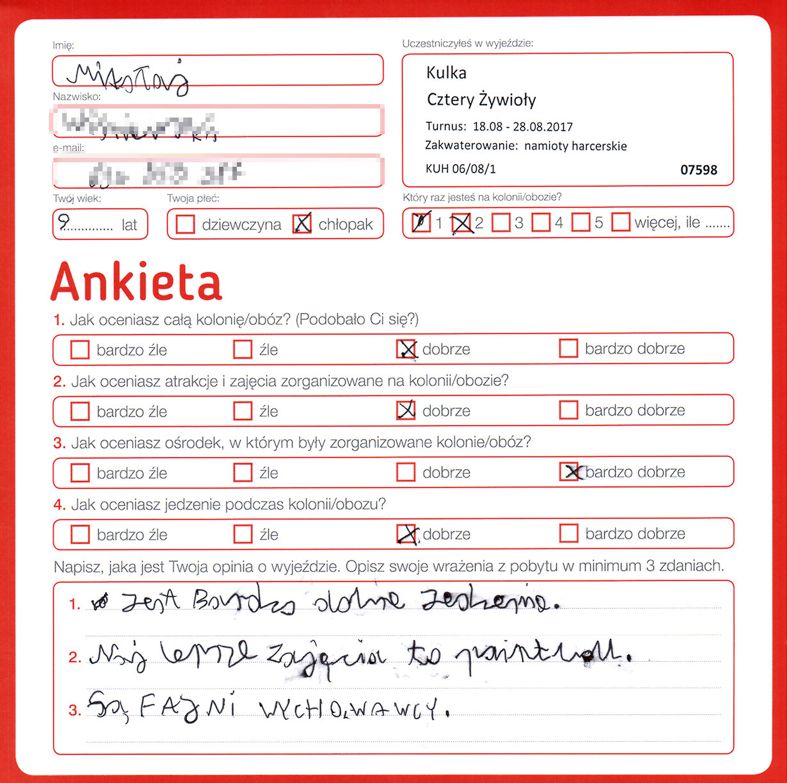 Imię:
Mikołaj
Uczestniczyłeś w wyjeździe:
Kulka
Cztery Żywioły
Turnus: 18.08 - 28.08.2017
Zakwaterowanie: namioty harcerskie
KUH 06/08/1 07598
Nazwisko:
e-mail:
Twój wiek:
9 lat
Twoja płeć:
dziewczyna chłopak
Który raz jesteś na kolonii/obozie?
1 2 3 4 5 więcej, ile .......
Ankieta
1. Jak oceniasz całą kolonię/obóz? (Podobało Ci się?)
bardzo źle źle dobrze bardzo dobrze
2. Jak oceniasz atrakcje i zajęcia zorganizowane na kolonii/obozie?
bardzo źle źle dobrze bardzo dobrze
3. Jak oceniasz ośrodek, w którym były zorganizowane kolonie/obóz?
bardzo źle źle dobrze bardzo dobrze
4. Jak oceniasz jedzenie podczas kolonii/obozu?
bardzo źle źle dobrze bardzo dobrze
Napisz, jaka jest Twoja opinia o wyjeździe. Opisz swoje wrażenia z pobytu w minimum 3 zdaniach.
1. Jest Bardzo dobre Jedzenie.
2. Naj lepsze zajęcia to paintball.
3. Są FAJNI WYCHOWAWCY.